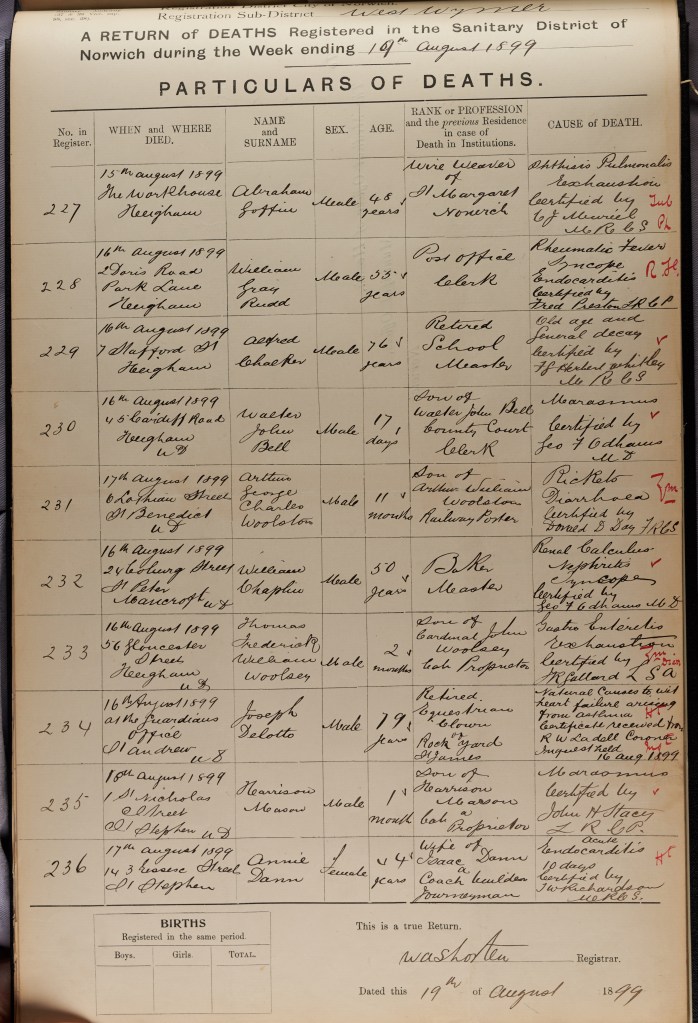 Registration District City of Norwich.
Registration Sub-District West Wymer
A RETURN of DEATHS Registered in the Sanitary District of
Norwich during the Week ending 19th August 1899
PARTICULARS OF DEATHS.
No. in
Register.
WHEN and WHERE
DIED.
NAME
and
SURNAME
SEX.
AGE.
RANK or PROFESSION
and the previous Residence
in case of
Death in Institutions.
CAUSE of DEATH.
227
15th August 1899
The Workhouse
Heigham
Abraham
Goffin
Male
48
years
Wire Weaver
of
St Margaret
Norwich
Phthisis Pulmonalis
Exhaustion
Certified by
CJ Muriel
MRCS
Tub
Ph
228
16th August 1899
2 Doris Road
Park Lane
Heigham
William
Gray
Rudd
Male
55
years
Post Office
Clerk
Rheumatic Fever
Syncope
Endocarditis
Certified by
Fred Preston LRCP
229
16th August 1899
7 Stafford St
Heigham
Alfred
Chalker
Male
76
years
Retired
School
Master
Old age and
General decay
Certified by
Herbert Whitley
MRCS
230
16th August 1899
45 Cardiff Road
Heigham
UD
Walter
John
Bell
Male
17
days
Son of
Walter John Bell
County Court
Clerk
Marasmus
Certified by
Geo F Odhams
MD
231
17th August 1899
6 Lothian Street
St Benedict
UD
Arthur
George
Charles
Woolston
Male
11
months
Son of
Arthur William
Woolston
Railway Porter
Rickets
Diarrhoea
Certified by
Donald D Day FRCS
232
16th August 1899
24 Coburg Street
St Peter
Mancroft UD
William
Chaplin
Male
50
years
Baker
Master
Renal Calculus
Nephritis
Syncope
Certified by
Geo F Odhams MD
233
16th August 1899
56 Gloucester
Street
Heigham
UD
Thomas
Frederick
William
Woolsey
Male
2
months
Son of
Cardinal John
Woolsey
Cab Proprietor
Gastro Enteritis
Exhaustion
Certified by
Pollard LSA
234
16th August 1899
at the Guardians
Office
St Andrew
UD
Joseph
Delotte
Male
79
years
Retired
Equestrian
Clown
of
Rock Yard
St James
Natural Causes to wit
heart failure arising
from asthma
Certificate received from
R W Ladell Coroner
Inquest held
16 Aug 1899
Ht
235
18th August 1899
1 St Nicholas
Street
St Stephen UD
Harrison
Mason
Male
1
month
Son of
Harrison
Mason
a
Cab Proprietor
Marasmus
Certified by
John H Stacy
LRCP.
236
17th August 1899
143 Essex Street
St Stephen
Annie
Dann
Female
years
Wife of
Isaac Dann
a
Coach builder
Journeyman
Acute
Endocarditis
10 days
Certified by
TW Richardson
MRCS.
Ht
BIRTHS
Registered in the same period.
Boys.
Girls.
TOTAL.
This is a true Return.
Registrar.
Dated this 19th of August 1899